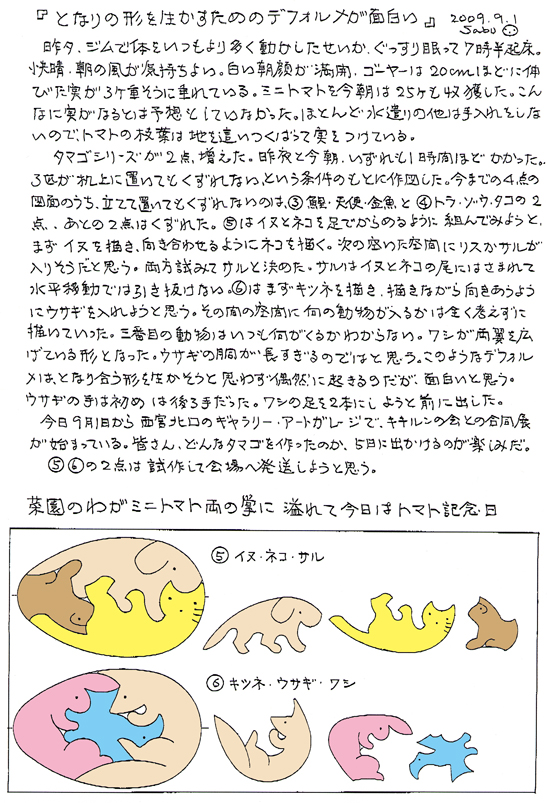 『となりの形を生かすためのデフォルメが面白い』 2009.9.1
Sabu
昨夕、ジムで体をいつもより多く動かしたせいか、ぐっすり眠って7時半起床。
快晴、朝の風が気持ちよい。白い朝顔が満開、ゴーヤーは20cmほどに伸
びた実が3ケ重そうに垂れている。ミニトマトを今朝は25ケも収獲した。こん
なに実がなるとは予想していなかった。ほとんど水遣りの他は手入れをしな
いので、トマトの枝葉は地を這いつくばって実をつけている。
タマゴシリーズが2点、増えた。昨夜と今朝、いずれも1時間ほどかかった。
3匹が机上に置いてもくずれない、という条件のもとに作図した。今までの4点の
図面のうち、立てて置いてもくずれないのは、③鯨・天使・金魚と④トラ・ゾウ・タコの2
点、、あとの2点はくずれた。⑤はイヌとネコを足でからめるように組んでみようと、
まずイヌを描き、向き合わせるようにネコを描く。次の空いた空間にリスかサルが
入りそうだと思う。両方試みてサルと決めた。サルはイヌとネコの尾にはさまれて
水平移動では引き抜けない。⑥はまずキツネを描き、描きながら向きあうよう
にウサギを入れようと思う。その間の空間に何の動物が入るかは全く考えずに
描いていった。三番目の動物はいつも何がくるかわからない。ワシが両翼を広
げている形となった。ウサギの胴が長すぎるのではと思う。このようなデフォル
メは、となり合う形を生かそうと思わず偶然に起きるのだが、面白いと思う。
ウサギの手は初めは後ろ手だった。ワシの足を2本にしようと前に出した。
今日9月1日から西宮北口のギャラリー・アートガレージで、キキルンの会との合同展
が始まっている。皆さん、どんなタマゴを作ったのか、5日に出かけるのが楽しみだ。
⑤⑥の2点は試作して会場へ発送しようと思う。
菜園のわがミニトマト両の掌に 溢れて今日はトマト記念日
⑤イヌ・ネコ・サル
⑥キツネ・ウサギ・ワシ